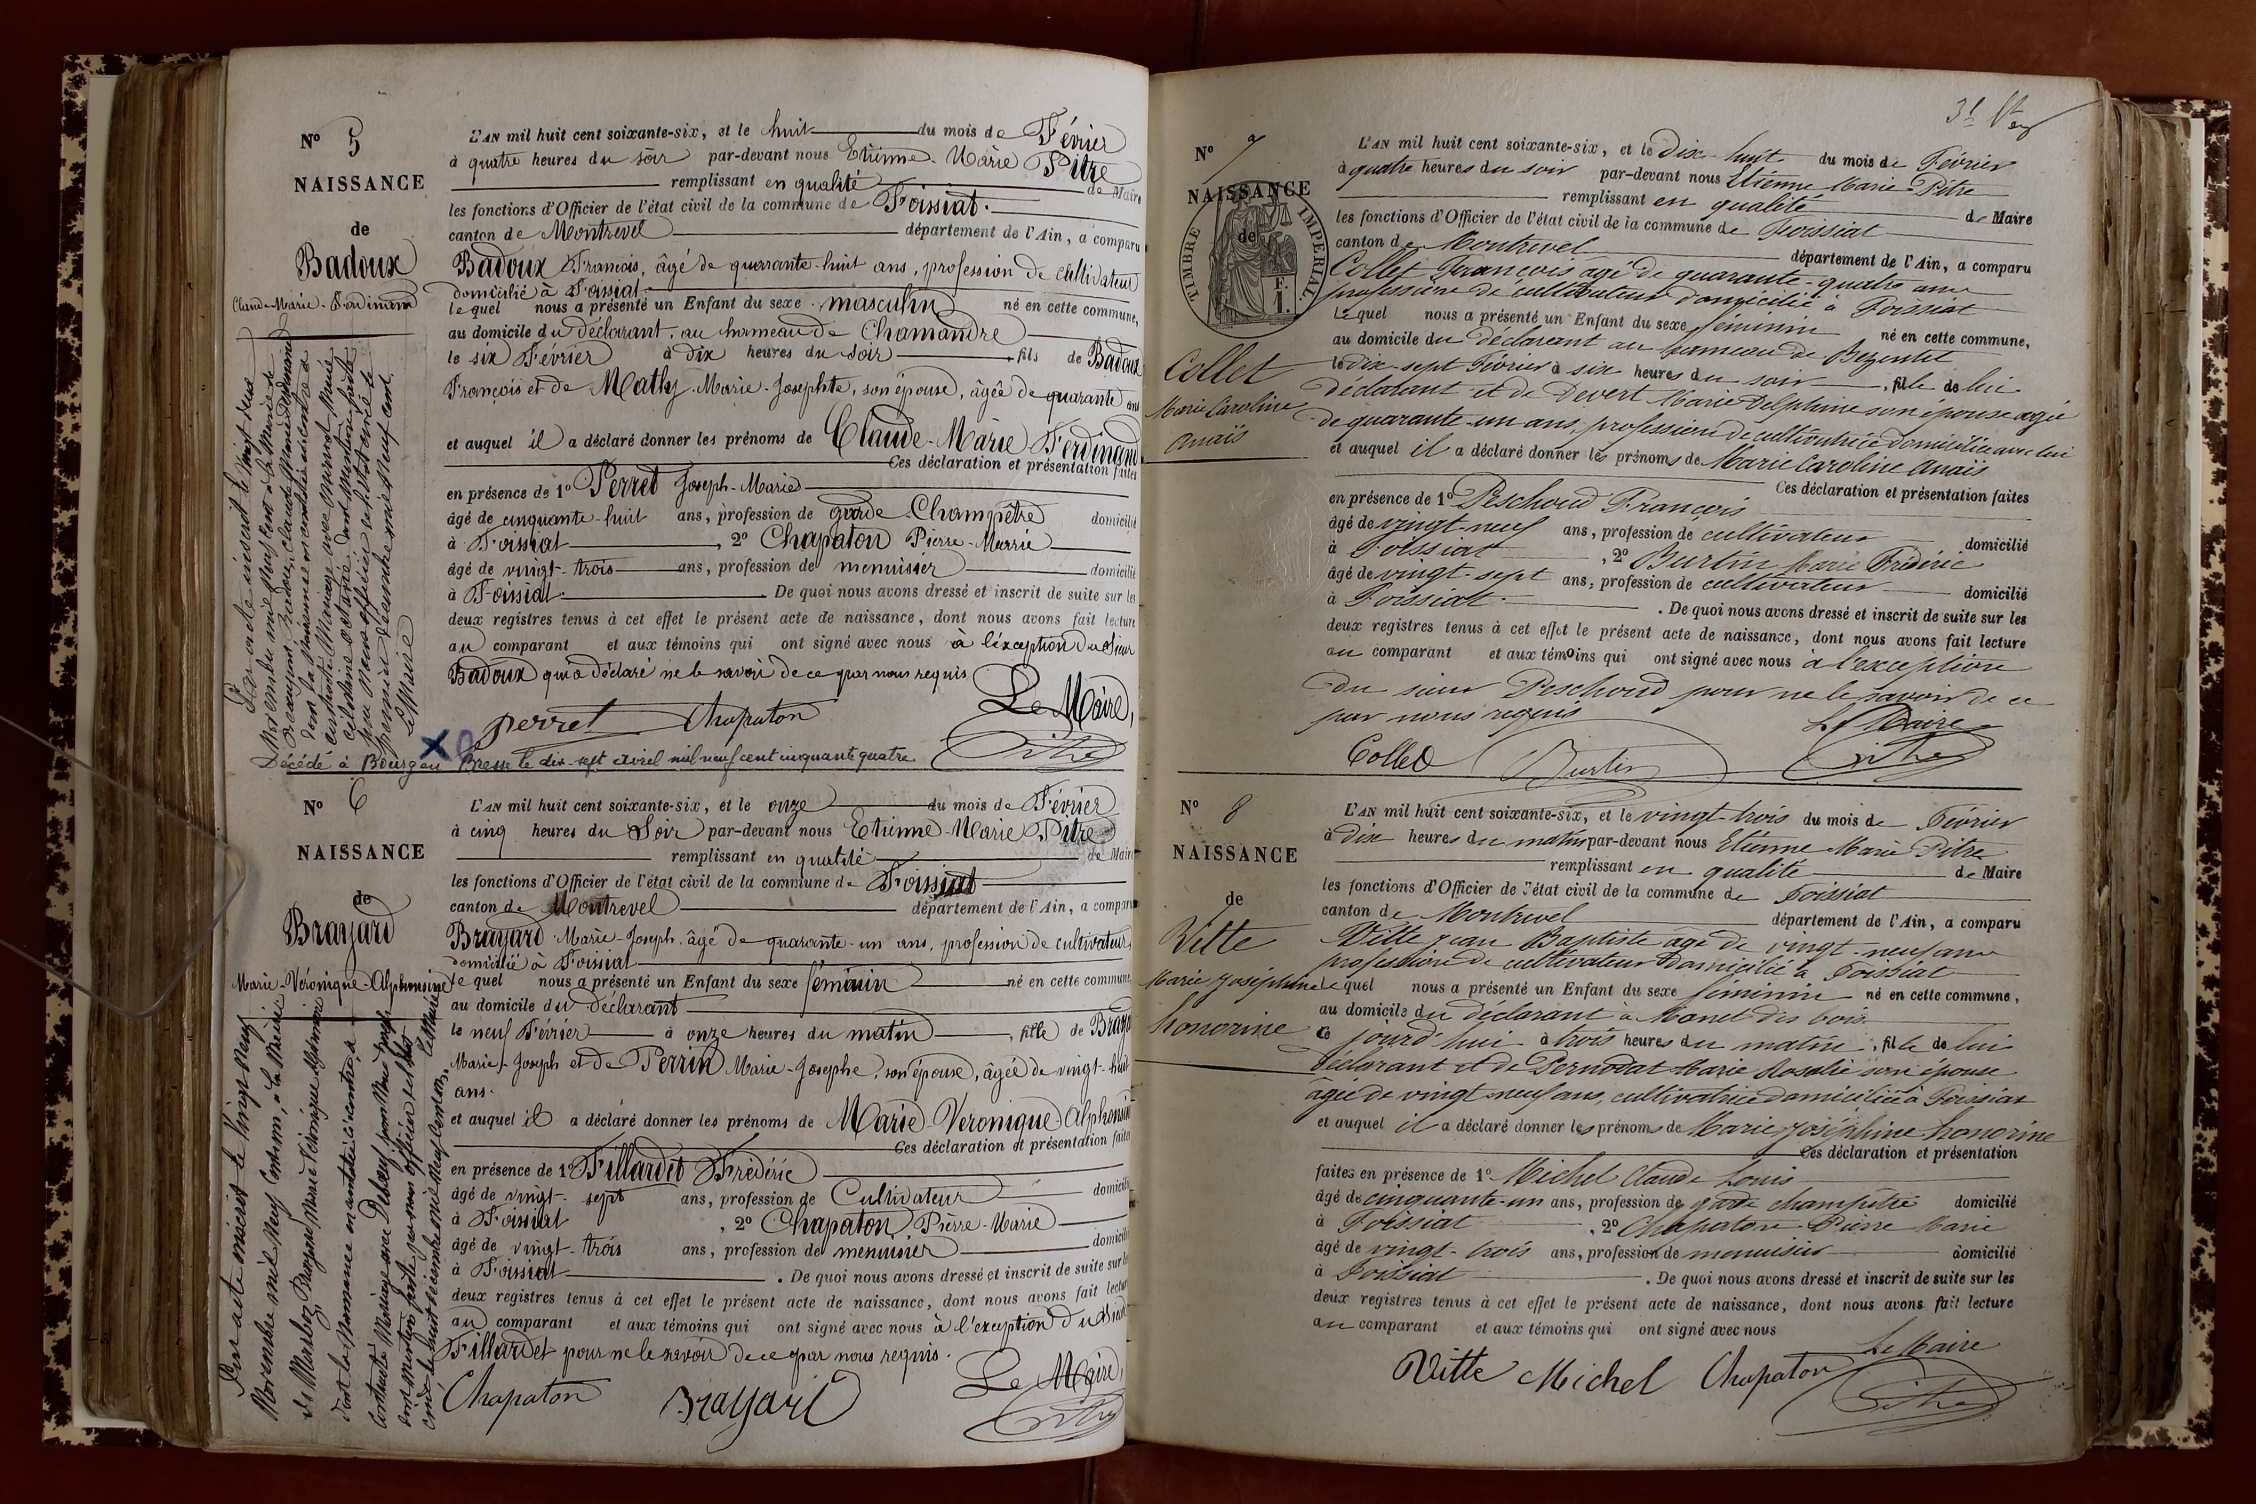 N° 5
NAISSANCE
de
Badoux
Claude-Marie-Ferdinand
L'AN mil huit cent soixante-six, et le huit du mois de Février
à quatre heures du soir par-devant nous Etienne-Marie Pitre
remplissant en qualité de Maire
les fonctions d'Officier de l'état civil de la commune de Foissiat.
canton de Montrevel département de l'Ain, a comparu
Badoux François, âgé de quarante-huit ans, profession de cultivateur
domicilié à Foissiat
lequel nous a présenté un Enfant du sexe masculin né en cette commune,
au domicile du déclarant, au hameau de Chamandre
le six Février à dix heures du soir fils de Badoux
François et de Mathy Marie-Josephte, son épouse, âgée de quarante ans
et auquel il a déclaré donner les prénoms de Claude-Marie Ferdinand
Ces déclaration et présentation faites
en présence de 1° Perret Joseph-Marie
âgé de cinquante-huit ans, profession de garde Champêtre domicilié
à Foissiat, 2° Chapaton Pierre-Marie
âgé de vingt-trois ans, profession de menuisier domicilié
à Foissiat. De quoi nous avons dressé et inscrit de suite sur les
deux registres tenus à cet effet le présent acte de naissance, dont nous avons fait lecture
au comparant et aux témoins qui ont signé avec nous à l'exception du Sieur
Badoux qui a déclaré ne le savoir de ce par nous requis
Le Maire,
Perret Chapaton Pitre
Par acte inscrit le vingt deux
Novembre mil neuf cent à la Mairie de
dont la
contracté Mariage avec
dont mention faite
par nous officier de l'état civil le
premier décembre mil neuf cent.
Le Maire
Décédé à Bourg en Bresse le dix-sept avril mil neuf cent cinquante quatre
N° 6
NAISSANCE
de
Brayard
Marie-Véronique-Alphonsine
L'AN mil huit cent soixante-six, et le onze du mois de Février
à cinq heures du Soir par-devant nous Etienne-Marie Pitre
remplissant en qualité de Maire
les fonctions d'Officier de l'état civil de la commune de Foissiat
canton de Montrevel département de l'Ain, a comparu
Brayard Marie-Joseph, âgé de quarante-un ans, profession de cultivateur,
domicilié à Foissiat
lequel nous a présenté un Enfant du sexe féminin né en cette commune
au domicile du Déclarant
le neuf Février à onze heures du matin, fille de Brayard
Marie-Joseph et de Perrin Marie-Josephe, son épouse, âgée de vingt-huit
ans.
et auquel il a déclaré donner les prénoms de Marie Veronique Alphonsine
Ces déclaration et présentation faites
en présence de 1° Fillardet Frédéric
âgé de vingt-sept ans, profession de Cultivateur domicilié
à Foissiat, 2° Chapaton Pierre-Marie
âgé de vingt-trois ans, profession de menuisier domicilié
à Foissiat. De quoi nous avons dressé et inscrit de suite sur les
deux registres tenus à cet effet le présent acte de naissance, dont nous avons fait lecture
au comparant et aux témoins qui ont signé avec nous à l'exception du Sieur
Fillardet pour ne le savoir de ce par nous requis.
Le Maire,
Chapaton Brayard Pitre
Par acte inscrit le vingt neuf
Novembre mil neuf cent onze, à la Mairie
de Marboz, Brayard Marie Véronique Alphonsine
dont la Naissance est constatée ci-contre, a
contracté Mariage avec
dont mention faite par nous officier de l'état
civil, le huit décembre mil neuf cent onze.
Le Maire
N° 7
NAISSANCE
de
TIMBRE IMPERIAL.
F.
1.
Collet
Marie Caroline
Anaïs
L'AN mil huit cent soixante-six, et le Dix-huit du mois de Février
à quatre heures du soir par-devant nous Etienne Marie Pitre
remplissant en qualité de Maire
les fonctions d'Officier de l'état civil de la commune de Foissiat
canton de Montrevel département de l'Ain, a comparu
Collet François âgé de quarante-quatre ans
profession de cultivateur domicilié à Foissiat
lequel nous a présenté un Enfant du sexe féminin né en cette commune,
au domicile du déclarant au hameau de Bezentet
le dix-sept Février à six heures du soir, fille de lui
déclarant et de Devert Marie Delphine son épouse agée
de quarante-un ans, profession de cultivatrice domiciliée avec lui
et auquel il a déclaré donner les prénoms de Marie Caroline Anaïs
Ces déclaration et présentation faites
en présence de 1° Peschoud François
âgé de vingt-neuf ans, profession de cultivateur domicilié
à Foissiat, 2° Burtin Marie Frédéric
âgé de vingt-sept ans, profession de cultivateur domicilié
à Foissiat. De quoi nous avons dressé et inscrit de suite sur les
deux registres tenus à cet effet le présent acte de naissance, dont nous avons fait lecture
au comparant et aux témoins qui ont signé avec nous à l'exception
du sieur Peschoud pour ne le savoir de ce
par nous requis
Le Maire
Collet Burtin Pitre
N° 8
NAISSANCE
de
Vitte
Marie Joséphine
honorine
L'AN mil huit cent soixante-six, et le vingt-trois du mois de Février
à dix heures du matin par-devant nous Etienne Marie Pitre
remplissant en qualité de Maire
les fonctions d'Officier de l'état civil de la commune de Foissiat
canton de Montrevel département de l'Ain, a comparu
Vitte Jean Baptiste agé de vingt-neuf ans
profession de cultivateur domicilié à Foissiat
lequel nous a présenté un Enfant du sexe féminin né en cette commune,
au domicile du déclarant à Manet des bois
ce jourd'hui à trois heures du matin, fille de lui
déclarant et de Pernodat Marie Rosalie son épouse
âgée de vingt-neuf ans, cultivatrice domiciliée à Foissiat
et auquel il a déclaré donner les prénoms de Marie Joséphine honorine
Ces déclaration et présentation
faites en présence de 1° Michel Claude Louis
âgé de cinquante-un ans, profession de garde champêtre domicilié
à Foissiat, 2° Chapaton Pierre Marie
âgé de vingt-trois ans, profession de menuisier domicilié
à Foissiat. De quoi nous avons dressé et inscrit de suite sur les
deux registres tenus à cet effet le présent acte de naissance, dont nous avons fait lecture
au comparant et aux témoins qui ont signé avec nous
Le Maire
Vitte Michel Chapaton Pitre